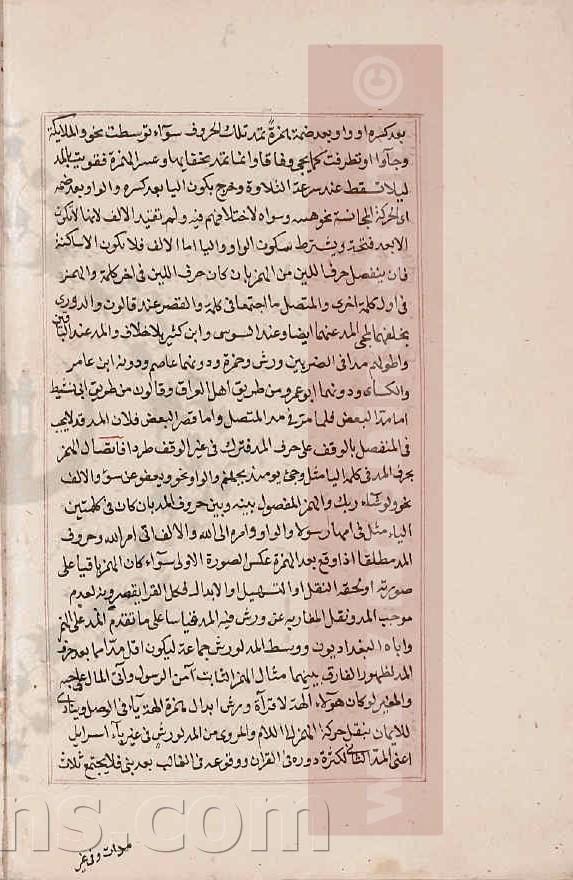 بعد كسره او واو بعد ضمة همزة تمد تلك الحروف سوآء توسطت نحو والملايكة
وجآوا او تطرفت كما يجي وفاقا وانما تمد لخفايها وعسر الهمزة فقويت بالمد
ليلا تسقط عند سرعة التلاوة وخرج بكون اليا بعد كسره والواو بعد ضمه
اى الحركة المجانسة نحو وسواه لاختلافهم فيه ولم تقيد الالف لانها لا تكون
الا بعد فتحة ويشترط سكون الواو واليا اما الالف فلا تكون الا ساكنة
فان ينفصل حرف اللين من الهمز بان كان حرف اللين فى اخر كلمة والهمز
فى اول كلمة اخرى والمتصل ما اجتمعا فى كلمة والقصر عند قالون والدورى
بخلفهما لمجى المد عنهما ايضا وعند السوسى وابن كثير بلا خلاف والمد عند الباقين
واطولهم مدا فى الضربين ورش وحمزة ودونهما عاصم ودونه ابن عامر
والكساى ودونهما ابو عمرو من طريق اهل العراق وقالون من طريق ابى نشيط
اما مد البعض فلما مر فى مد المتصل واما قصر البعض فلان المد قد لا يجب
فى المنفصل بالوقف على حرف المد فترك فى غير الوقف طردا فاتصال الهمز
بحرف المد فى كلمة اليا مثل وجئ يومئذ بجهنم والواو نحو ويعفو عن سوء والالف
نحو ولو شاء ربك والهمز المفصول بينه وبين حروف المد بان كان فى كلمتين
الياء مثل فى امها رسولا والواو وامره الى الله والالف اتى امر الله وحروف
المد مطلقا اذا وقع بعد الهمزة عكس الصورة الاولى سوآء كان الهمز باقيا على
صورته او لحقه النقل او التسهيل او الابدال فكل القرا يقصرونه لعدم
موجب المد ونقل المغاربة عن ورش فيه المد قياسا على ما تقدم المد على الهمز
واباه البغداديون ووسط المد لورش جماعة ليكون اقل مدا مما بعد حرف
المد لظهور الفارق بينهما مثال الهمز الثابت آمن الرسول وآتى المال على حبه
والمغير لو كان هولاء آلهة لا قرآة ورش ابدال همزة الهة يآء فى الوصل وينادى
للايمان بنقل حركة الهمز الى اللام والمروى من المد لورش فى غير يآء اسرايل
اعنى المد الثانى لكثرة دوره فى القران ووقوعه فى الغالب بعد بنى فلا يجتمع ثلاث
مدات وفى غير
ns.com